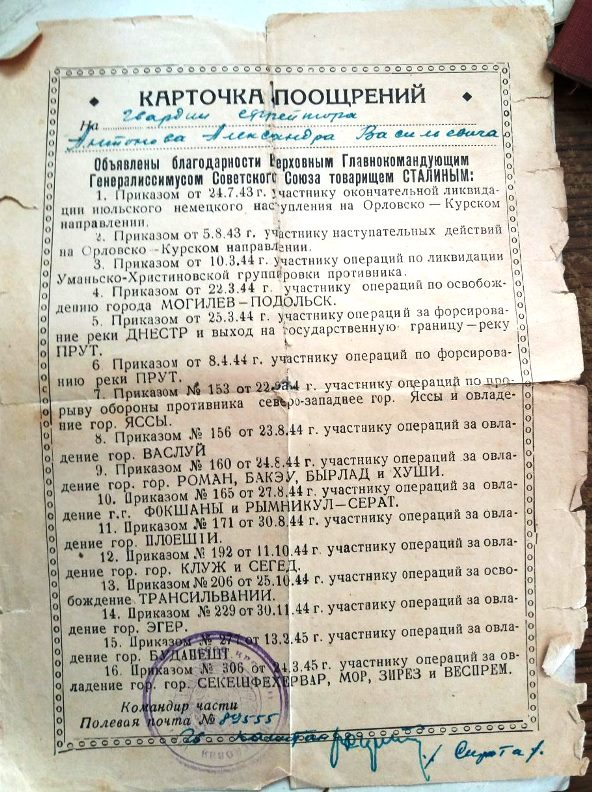 КАРТОЧКА ПООЩРЕНИЙ
На гвардии
Антонова Александра Васильевича
Объявлены благодарности Верховным Главнокомандующим
Генералиссимусом Советского Союза товарищем СТАЛИНЫМ:
1. Приказом от 24.7.43 г. участнику окончательной ликвида-
ции июльского немецкого наступления на Орловско—Курском
направлении.
2. Приказом от 5.8.43 г. участнику наступательных действий
на Орловско—Курском направлении.
3. Приказом от 10.3.44 г. участнику операций по ликвидации
Уманьско-Христиновской группировки противника.
4. Приказом от 22.3.44 г. участнику операций по освобож-
дению города МОГИЛЕВ—ПОДОЛЬСК.
5. Приказом от 25.3.44 г. участнику операций за форсирова-
ние реки ДНЕСТР и выход на государственную границу—реку
ПРУТ.
6. Приказом от 8.4.44 г. участнику операций по форсирова-
нию реки ПРУТ.
7. Приказом № 153 от г. участнику операций по про-
рыву обороны противника северо-западнее гор. Яссы и овладе-
ние гор. ЯССЫ.
8. Приказом № 156 от 23.8.44 г. участнику операций за овла-
дение гор. ВАСЛУЙ
9. Приказом № 160 от 24.8.44 г. участнику операций за овла-
дение гор. гор. РОМАН, БАКЭУ, БЫРЛАД и ХУШИ.
10. Приказом № 165 от 27.8.44 г. участнику операций за овла-
дение г.г. ФОКШАНЫ и РЫМНИКУЛ—СЕРАТ.
11. Приказом № 171 от 30.8.44 г. участнику операций за овла-
дение гор. ПЛОЕШТИ.
12. Приказом № 192 от 11.10.44 г. участнику операций за овла-
дение гор. гор. КЛУЖ и СЕГЕД.
13. Приказом № 206 от 25.10.44 г. участнику операций за осво-
бождение ТРАНСИЛЬВАНИИ.
14. Приказом № 229 от 30.11.44 г. участнику операций за овла-
дение гор. ЭГЕР.
15. Приказом № от 13.2.45 г. участнику операций за овла-
дение гор. БУДАПЕШТ
16. Приказом № 306 от 24.3.45 г. участнику операций за ов-
ладение гор. гор. СЕКЕШФЕХЕРВАР, МОР, ЗИРЕЗ и ВЕСПРЕМ.
Командир части
Полевая почта № 89555
Гв капитан / Сирота /.